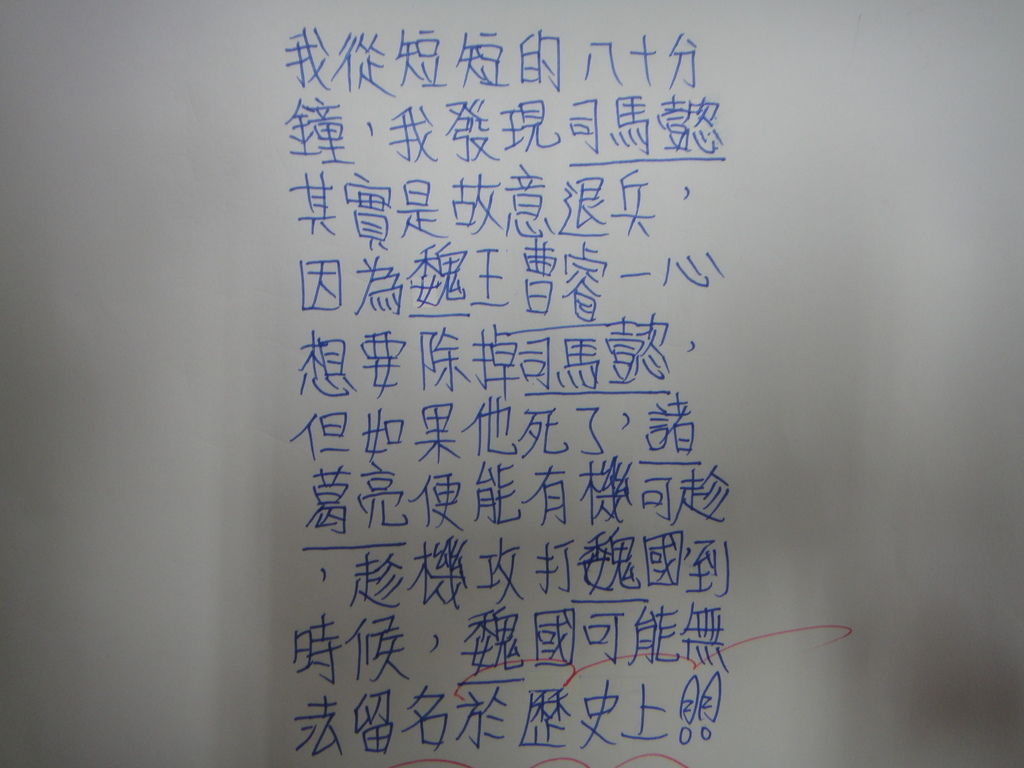 我從短短的八十分
鐘，我發現司馬懿
其實是故意退兵，
因為魏王曹睿一心
想要除掉司馬懿，
但如果他死了，諸
葛亮便能有機可趁
，趁機攻打魏國，到
時候，魏國可能無
法留名於歷史上!!